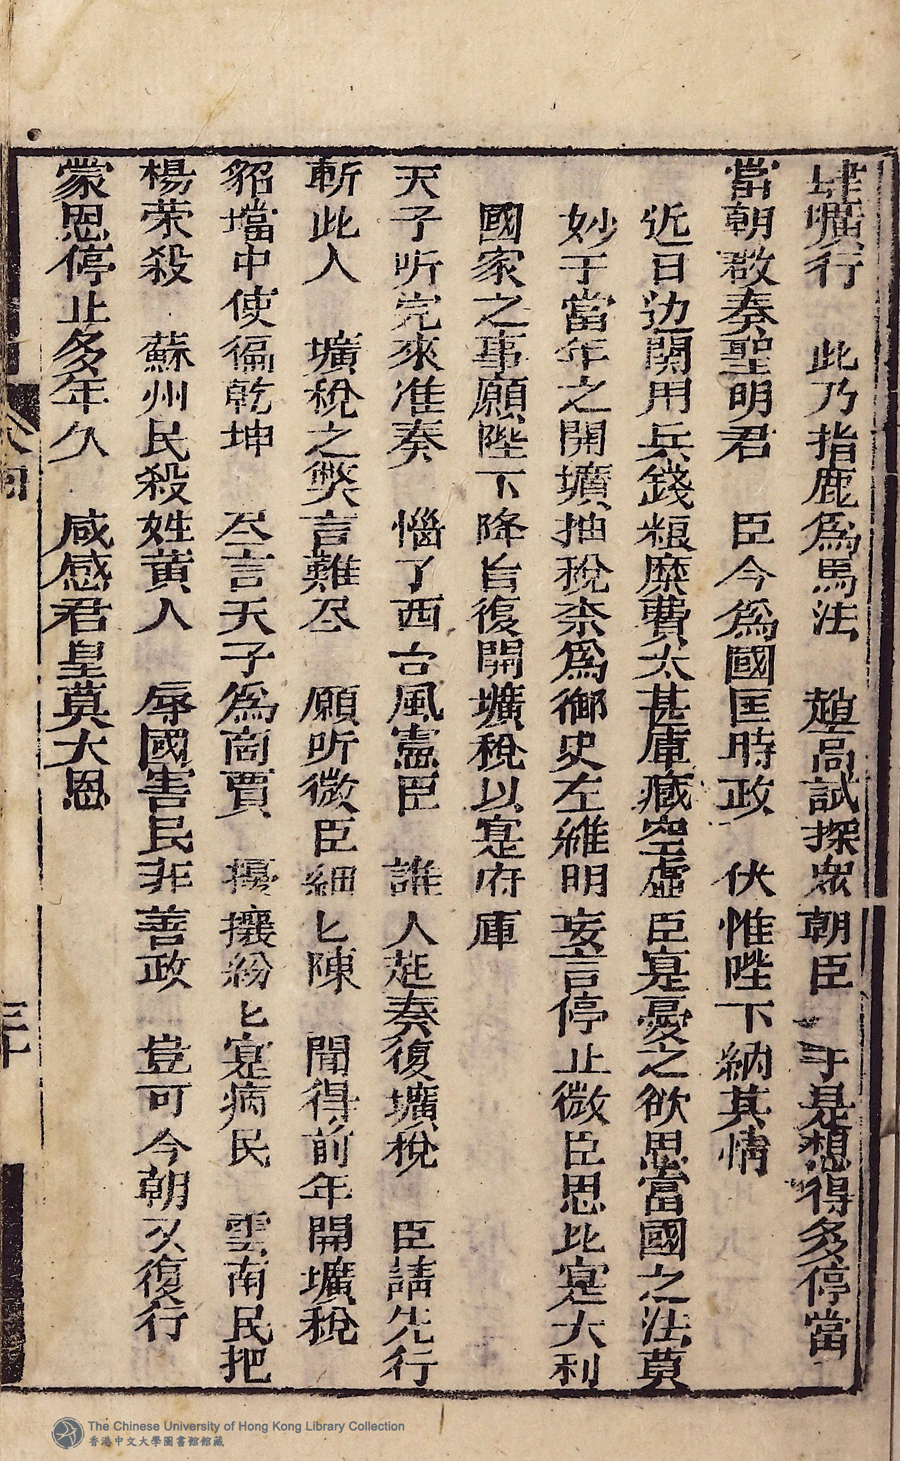 肆壙行　此乃指鹿為馬法　趙高試探眾朝臣　于是想得多停當
當朝啟奏聖明君　臣今為國匡時政　伏惟陛下納其情
近日边関用兵錢粮糜費太甚庫藏空虛臣寔憂之欲思當國之法莫
妙于當年之開壙抽稅柰為御史左維明妄言停止微臣思此寔大利
國家之事願陛下降旨復開壙稅以寔府庫
天子听完來准奏　惱了西台風憲臣　誰人起奏復壙稅　臣請先行
斬此人　壙稅之獘言難尽　願听微臣細匕陳　聞得前年開壙稅
貂璫中使徧乾坤　尽言天子為商賈　擾攘紛匕寔病民　雲南民把
楊荣殺　蘇州民殺姓黃人　辱國害民非善政　豈可今朝又復行
蒙恩停止多年久　咸感君皇莫大恩
回
三十
The Chinese University of Hong Kong Library Collection
香港中文大學圖書館館藏